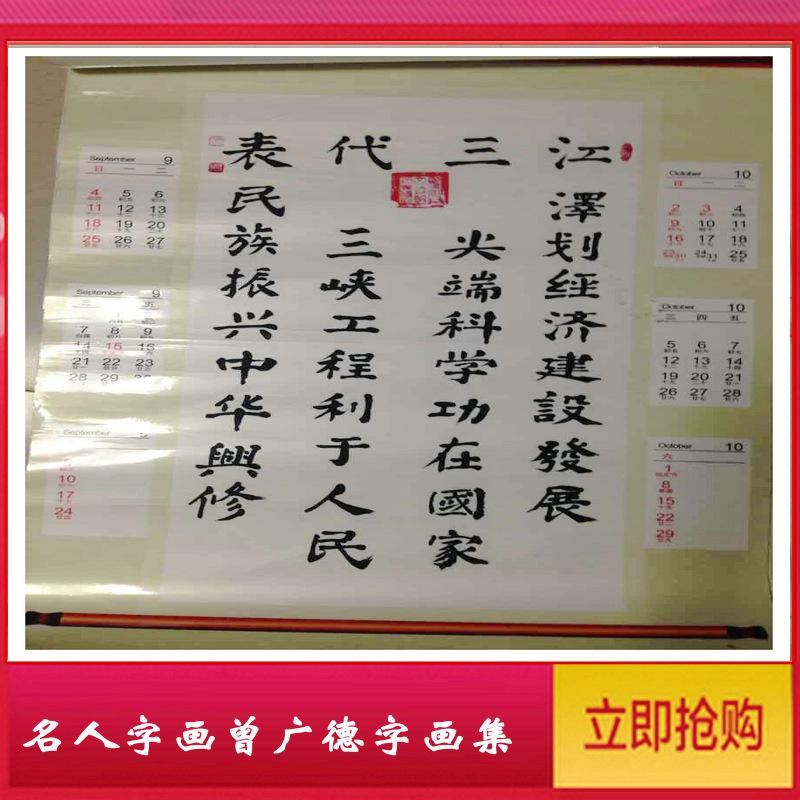 江澤划经济建設發展
三
尖端科学功在國家
代
三峡工程利于人民
表民族振兴中华興修
September 9
日 一 二
4 5 6
11 12 13
18 19 20
25 26 27
September 9
三 五
7 8 9
14 15 16
21 22 23
28 29 30
September
10
17
24
October 10
日 一 二
2 3 4
9 10 11
16 17 18
25
October 10
三 四 五
5 6 7
12 13 14
19 20 21
26 27 28
October 10
六
1
8
15
22
29
名人字画曾广德字画集
立即抢购